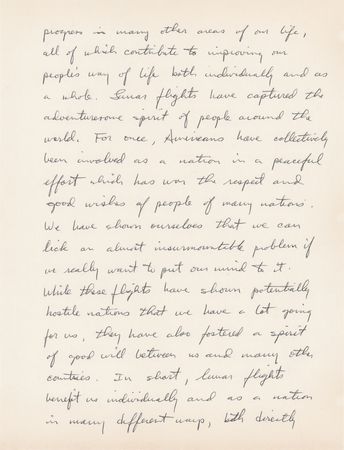 progress in many other areas of our life,
all of which contribute to improving our
people's way of life both individually and as
a whole. Lunar flights have captured the
adventuresome spirit of people around the
world. For once, Americans have collectively
been involved as a nation in a peaceful
effort which has won the respect and
good wishes of people of many nations.
We have shown ourselves that we can
lick an almost insurmountable problem if
we really want to put our mind to it.
While these flights have shown potentially
hostile nations that we have a lot going
for us, they have also fostered a spirit
of good will between us and many other
countries. In short, lunar flights
benefit us individually and as a nation
in many different ways, both directly